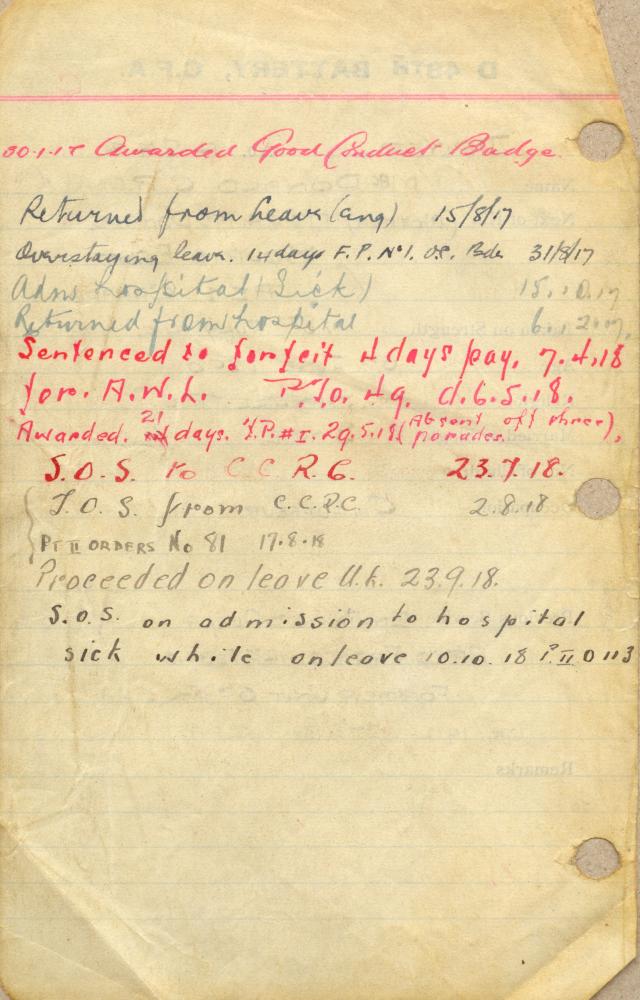 30-1-17 Awarded Good Conduct Badge.
Returned from Leave (ang) 15/8/17
Overstaying leave. 14 days F.P. No 1. O.C. Bde 31/8/17
Adm hospital (Sick) 15.10.17
Returned from hospital 6.12.17.
Sentenced to forfeit 4 days pay. 7.4.18
for. A.W.L. P. II o. 49. d.6.5.18.
21
Awarded. days. F.P.#I. 29.5.18 (Absent off three
parades.),
S.O.S. to C C R C. 23.7.18.
T.O.S. from C.C.R.C. 2.8.18
PT II ORDERS No 81 17-8-18
Proceeded on leave U.K. 23.9.18.
S.O.S. on admission to hospital
sick while on leave 10.10.18 P.II O 113
D 48TH BATTERY, C.F.A.
Name
Remarks